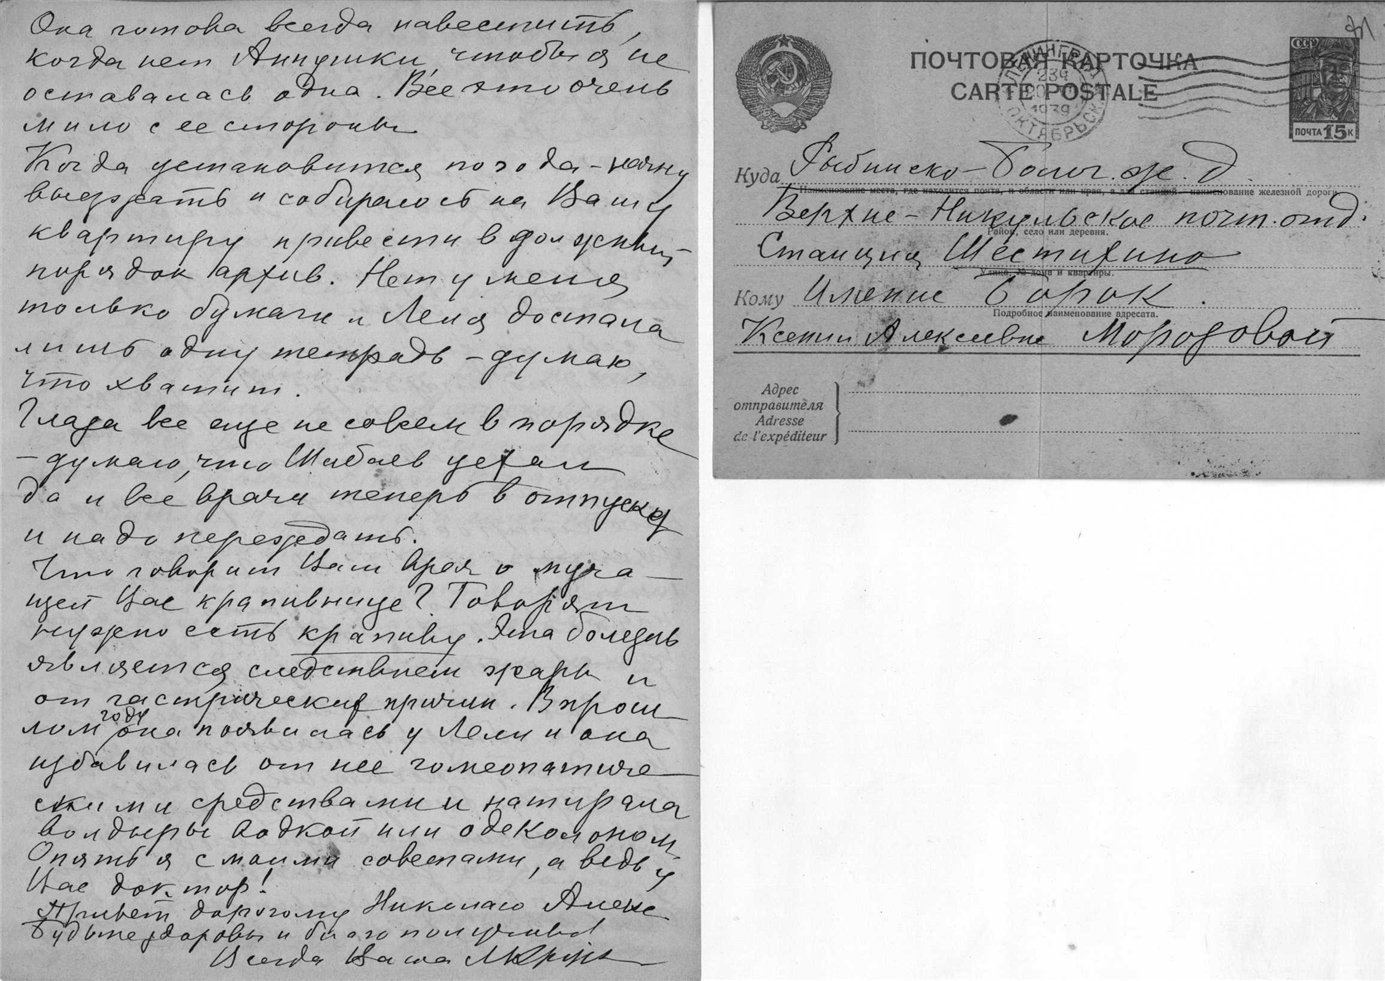 Она готова всегда навестить,
когда нет Аннушки, чтобы я не
оставалась одна. Все это очень
мило с ее стороны
Когда установится погода – начну
выезжать и собираюсь на Вашу
квартиру привести в должный
порядок архив. Нет у меня
только бумаги и Леля достала
лишь одну тетрадь – думаю,
что хватит.
Глаза все еще не совсем в порядке
– думаю, что Шибаев уехал
да и все врачи теперь в отпуску
и надо переждать.
Что говорит Вам врач о муча-
щей Вас крапивнице? Говорят
нужно есть крапиву. Эта болезнь
является следствием жары и
от гастрических причин. В прош
лом году она появилась у Лели и она
избавилась от нее гомеопатиче-
скими средствами и натирала
волдыры водкой или одеколоном.
Опять я с моими советами, а ведь у
Вас доктор!
Привет дорогому Николаю Алекс.
Будьте здоровы и благополучны!
Всегда Ваша
ПОЧТОВАЯ КАРТОЧКА
CARTE POSTALE
ЛЕНИНГРАД
1939
ОКТЯБРЬСК
СССР
ПОЧТА 15 К
Куда Рыбинско-Болог. ж. д.
Наименование места, где находится почта, и области или края, а для станций – наименование железной дороги.
Верхне-Никульское почт. отд.
Район, село или деревня.
Станция Шестихино
Улица, № дома и квартиры.
Кому Имение Борок.
Подробное наименование адресата.
Ксении Алексеевне Морозовой
Адрес
отправителя
Adresse
de l'expéditeur